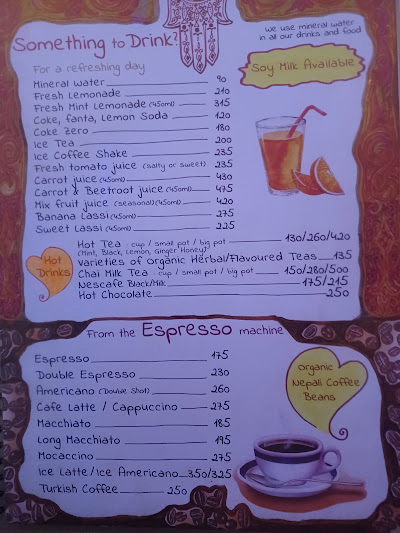 Something to Drink?
we use mineral water
in all our drinks and food
For a refreshing day
Soy Milk Available
Mineral water 90
Fresh Lemonade 210
Fresh Mint Lemonade (450ml) 315
Coke, fanta, Lemon Soda 120
Coke Zero 180
Ice Tea 200
Ice Coffee Shake 235
Fresh tomato juice (salty or sweet) 235
Carrot juice (450ml) 430
Carrot & Beetroot juice (450ml) 475
Mix fruit juice (seasonal) (450ml) 420
Banana Lassi (450ml) 275
Sweet Lassi (450ml) 225
Hot Drinks
Hot Tea : cup / small pot / big pot 130/260/420
(Mint, Black, Lemon, Ginger Honey)
Varieties of Organic Herbal/Flavoured Teas 135
Chai Milk Tea : cup / small pot / big pot 150/280/500
Nescafe Black/Milk 175/215
Hot Chocolate 250
From the Espresso machine
Espresso 175
Double Espresso 230
Americano (Double Shot) 260
Cafe Latte / Cappuccino 275
Macchiato 185
Long Macchiato 195
Mocaccino 275
Ice Latte/Ice Americano 350/325
Turkish Coffee 250
Organic
Nepali Coffee
Beans